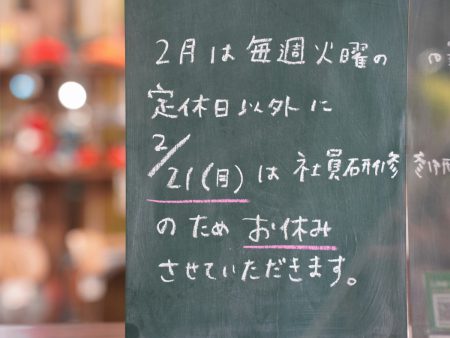 2月は毎週火曜の
定休日以外に
2/21(月)は社員研修
のためお休み
させていただきます。